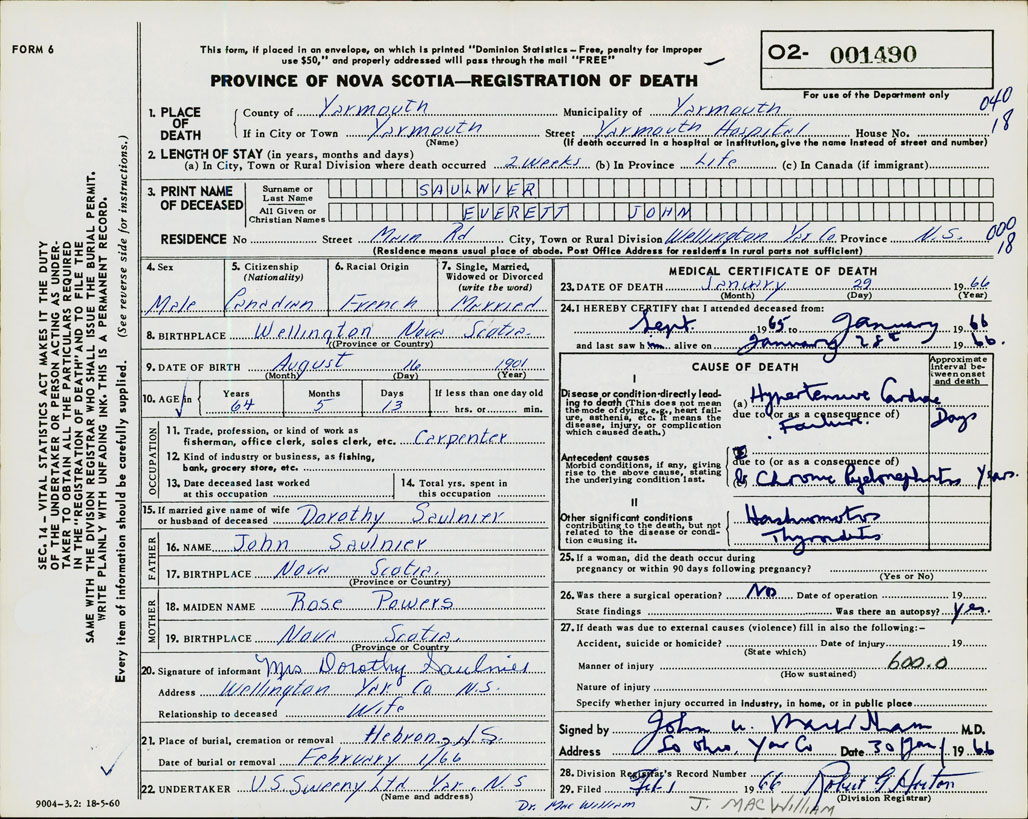 FORM 6
This form, if placed in an envelope, on which is printed "Dominion Statistics – Free, penalty for improper
use $50," and properly addressed will pass through the mail "FREE"
PROVINCE OF NOVA SCOTIA—REGISTRATION OF DEATH
02- 001490
For use of the Department only
040
18
1. PLACE OF DEATH
County of Yarmouth Municipality of Yarmouth
If in City or Town Yarmouth Street Yarmouth Hospital House No.
(Name) (If death occurred in a hospital or institution, give the name instead of street and number)
2. LENGTH OF STAY (in years, months and days)
(a) In City, Town or Rural Division where death occurred 2 weeks (b) In Province Life (c) In Canada (if immigrant)
3. PRINT NAME OF DECEASED
Surname or Last Name SAULNIER
All Given or Christian Names EVERETT JOHN
RESIDENCE No Street Main Rd City, Town or Rural Division Wellington Yar Co Province N.S.
000
18
(Residence means usual place of abode. Post Office Address for residents in rural parts not sufficient)
4. Sex Male
5. Citizenship (Nationality) Canadian
6. Racial Origin French
7. Single, Married, Widowed or Divorced (write the word) Married
8. BIRTHPLACE Wellington Nova Scotia
(Province or Country)
9. DATE OF BIRTH August 16 1901
(Month) (Day) (Year)
10. AGE in Years 64 Months 5 Days 13 If less than one day old hrs. or min.
OCCUPATION
11. Trade, profession, or kind of work as
fisherman, office clerk, sales clerk, etc. Carpenter
12. Kind of industry or business, as fishing,
bank, grocery store, etc.
13. Date deceased last worked
at this occupation
14. Total yrs. spent in
this occupation
15. If married give name of wife
or husband of deceased Dorothy Saulnier
FATHER
16. NAME John Saulnier
17. BIRTHPLACE Nova Scotia
(Province or Country)
MOTHER
18. MAIDEN NAME Rose Powers
19. BIRTHPLACE Nova Scotia
(Province or Country
20. Signature of informant Mrs Dorothy Saulnier
Address Wellington Yar Co N.S.
Relationship to deceased Wife
21. Place of burial, cremation or removal Hebron, N.S.
Date of burial or removal February 1/66
22. UNDERTAKER U.S. Sweeny Ltd Yar. N.S
(Name and address)
MEDICAL CERTIFICATE OF DEATH
23. DATE OF DEATH January 29 1966
(Month) (Day) (Year)
24. I HEREBY CERTIFY that I attended deceased from:
Sept. 1965 to January 1966
and last saw him alive on January 28 1966.
CAUSE OF DEATH
Approximate
interval be-
tween onset
and death
I
Disease or condition directly lead-
ing to death (This does not mean
the mode of dying, e.g., heart fail-
ure, asthenia, etc. It means the
disease, injury, or complication
which caused death.)
(a) Hypertensive Cardiac
due to (or as a consequence of)
Failure. Days
Antecedent causes
Morbid conditions, if any, giving
rise to the above cause, stating
the underlying condition last.
due to (or as a consequence of)
Chronic Pyelonephritis Years.
II
Other significant conditions
contributing to the death, but not
related to the disease or condi-
tion causing it.
Hashimotos
Thyroiditis
25. If a woman, did the death occur during
pregnancy or within 90 days following pregnancy?
(Yes or No)
26. Was there a surgical operation? No Date of operation 19
State findings Was there an autopsy? yes.
27. If death was due to external causes (violence) fill in also the following:–
Accident, suicide or homicide? Date of injury 19
(State which)
Manner of injury 600.0
(How sustained)
Nature of injury
Specify whether injury occurred in industry, in home, or in public place
Signed by M.D.
Address So Ohio, Yar Co Date 30 Jan 1966
28. Division Registrar's Record Number
29. Filed Feb 1 1966 Robert G Horton
(Division Registrar)
9004–3.2: 18-5-60
Dr. Mac William
J. MACWILLIAM
SEC. 14 – VITAL STATISTICS ACT MAKES IT THE DUTY
OF THE UNDERTAKER OR PERSON ACTING AS UNDER-
TAKER TO OBTAIN ALL THE PARTICULARS REQUIRED
IN THE "REGISTRATION OF DEATH" AND TO FILE THE
SAME WITH THE DIVISION REGISTRAR WHO SHALL ISSUE THE BURIAL PERMIT.
WRITE PLAINLY WITH UNFADING INK. THIS IS A PERMANENT RECORD.
Every item of information should be carefully supplied. (See reverse side for instructions.)